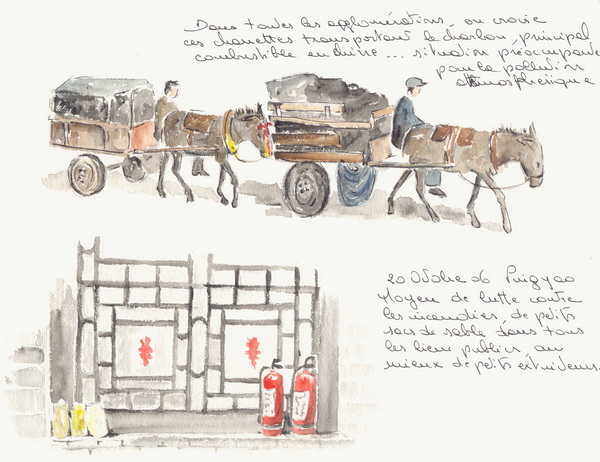 Dans toutes les agglomérations, on croise
ces charrettes transportant le charbon, principal
combustible en chine ... situation préoccupante
pour la pollution
atmosphérique
20 Octobre 06 Pingyao
Moyen de lutte contre
les incendies, de petits
sacs de sable, dans tous
les lieux publics, au
mieux de petits extincteurs.